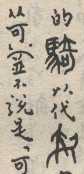 的騎以代
可（並不說是「可